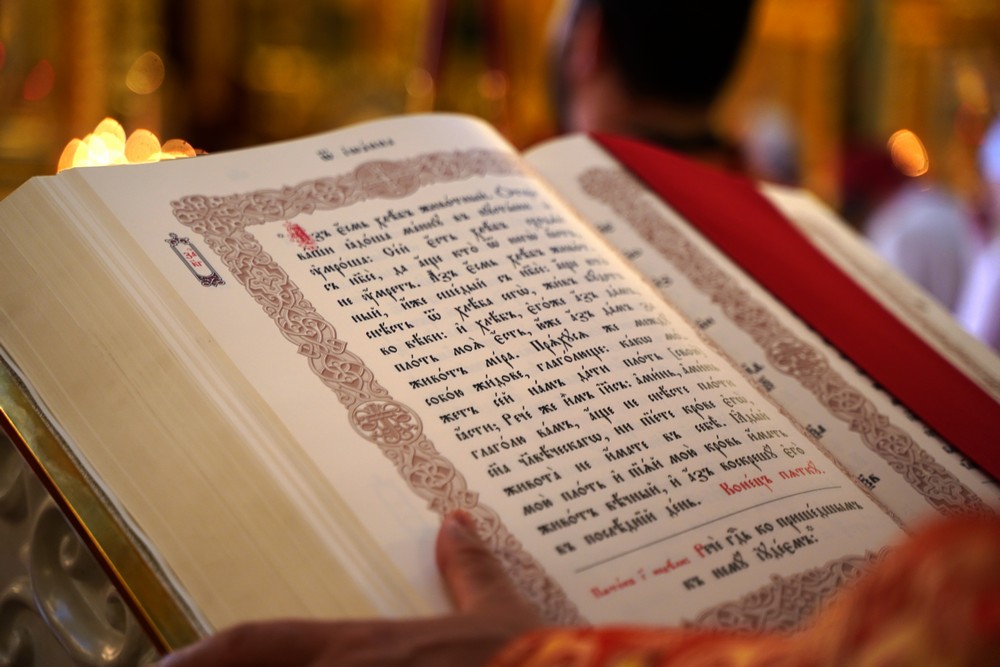 Ѿ і҆ѡа́нна
За҃
к҃г
А҆́зъ є҆́смь хлѣ́бъ живо́тный. Ѻ҆тцы̀
ва́ши ꙗ҆до́ша ма́ннꙋ въ пꙋсты́ни,
ᲂу҆мро́ша: Се́й є҆́сть хлѣ́бъ сходѧ́й
съ нб҃сѐ, да а҆́ще кто̀ ѿ негѡ̀ ꙗ҆́стъ
не ᲂу҆́мретъ. А҆́зъ є҆́смь хлѣ́бъ живо́т-
ный, и҆́же сше́дый съ нб҃сѐ: а҆́ще кто̀
снѣ́сть ѿ хлѣ́ба сегѡ̀, жи́въ бꙋ́детъ
во вѣ́ки: и҆ хлѣ́бъ, є҆го́же а҆́зъ да́мъ,
пло́ть моѧ̀ є҆́сть, ю҆́же а҆́зъ да́мъ за
живо́тъ мі́ра. Прѧ́хꙋсѧ же междꙋ̀
собо́ю жи́дове, глаго́люще: ка́кѡ мо́-
жетъ се́й на́мъ да́ти пло́ть [свою̀]
ꙗ҆́сти; Рече́ же и҆̀мъ і҆и҃съ: а҆ми́нь, а҆ми́нь
глаго́лю ва́мъ, а҆́ще не снѣ́сте пло́ти
сн҃а чл҃вѣ́ческагѡ, ни пїе́те кро́ве є҆гѡ̀,
живота̀ не и҆́мате въ себѣ̀. Ꙗ҆ды́й
мою̀ пло́ть и҆ пїѧ́й мою̀ кро́вь и҆́мать
живо́тъ вѣ́чный, и҆ а҆́зъ воскрешꙋ̀ є҆го̀
въ послѣ́днїй де́нь. Коне́цъ пѧткꙋ̀.
Речѐ гд҇ь ко прише́дшымъ
къ немꙋ̀ і҆ꙋде́ѡмъ: